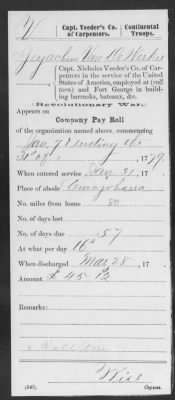 V | Capt. Veeder's Co. of Carpenters. | Continental Troops.
Capt. Nicholas Veeder's Company of Carpenters in the service of the United States of America, employed at (roll torn) and Fort George in building barracks, bateaux, &c.
Revolutionary War.
Appears on
Company Pay Roll
of the organization named above, commencing
Jan. 7 & ending the
31st of 1779.
When entered service Jan 31, 17
Place of abode Conajoharie
No. miles from home 80
No. of days lost
No. of days due 57
At what per day 16s
When discharged Mar 28, 17
Amount £ 45 12
Remarks:
(545) Copyist.